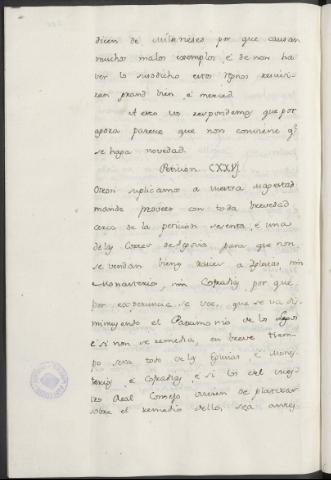 dicen de milaneses por que causan
muchos malos exemplos é de non ha
ver lo susodicho estos Rejnos recivi
ran grand bien, é merced.
A esto vos respondemos que por
agora parece que non conviene q.e
se haga novedad.
Peticion CXXVJ.
Otrosi suplicamos a vuestra magestad
mande proveer con toda brevedad
cerca de la peticion sesenta, é una
de las Cortes de Segovia para que non
se vendan bienes raices a Iglesias, nin
Monasterios, nin Cofradias, por que
por experiencia se vee, que se va di
minuyendo el Patrimonio de los Legos
é si non se remedia, en breve tiem
po sera todo de las Iglesias é Mones
terios, é Cofradias, é si los del vues
tro Real Consejo ovieren de platicar
sobre el remedio dello, sea antes